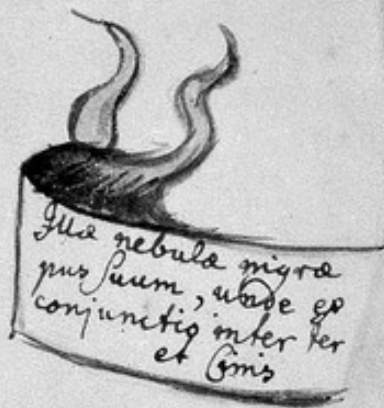 Illæ nebulæ nigræ
pus suum, unde ex
conjunctio inter ter
et Cinis